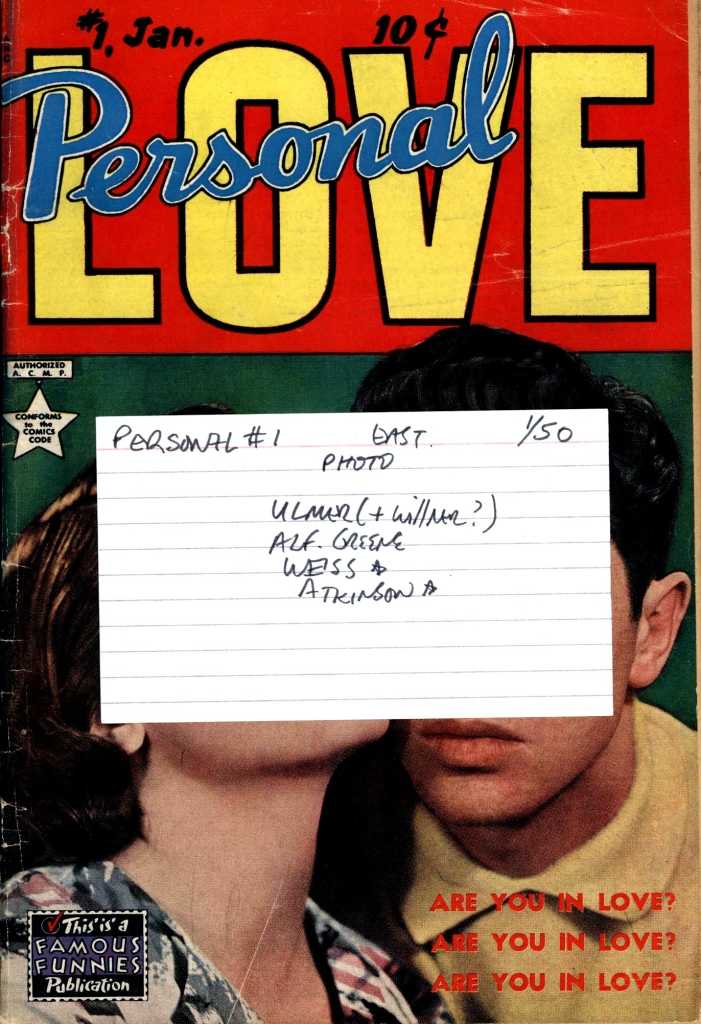 #1, Jan. 10¢
Personal
LOVE
AUTHORIZED
A. C. M. P.
CONFORMS
to the
COMICS
CODE
PERSONAL #1 EAST. 1/50
PHOTO
ULMER (+ WILLNER?)
ALF. GREENE
WEISS
ATKINSON
ARE YOU IN LOVE?
ARE YOU IN LOVE?
ARE YOU IN LOVE?
This is a
FAMOUS
FUNNIES
Publication